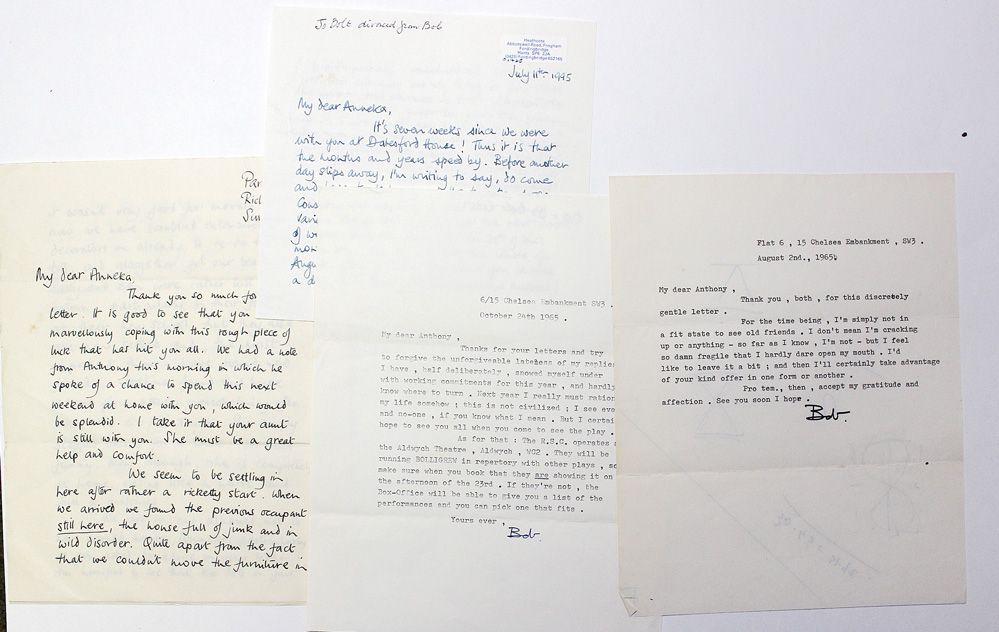 To Bolt divorced from Bob
Heathcote
Fordingbridge
July 11th 1995
My dear Anneka,
It's seven weeks since we were
with you at Dalesford House! Thus it is that
the months and years speed by. Before another
day slips away, I'm writing to say, do come
and
Cons
vari
of w
mon
Augu
a d
Par
Rich
My dear Anneka,
Thank you so much for
letter. It is good to see that you
marvellously coping with this rough piece of
luck that has hit you all. We had a note
from Anthony this morning in which he
spoke of a chance to spend this next
weekend at home with you, which would
be splendid. I take it that your aunt
is still with you. She must be a great
help and comfort.
We seem to be settling in
here after rather a ricketty start. When
we arrived we found the previous occupant
still here, the house full of junk and in
wild disorder. Quite apart from the fact
that we couldn't move the furniture in
6/15 Chelsea Embankment SW3 .
October 24th 1965 .
My dear Anthony ,
Thanks for your letters and try
to forgive the unforgiveable lateness of my replies
I have , half deliberately , snowed myself under
with working commitments for this year , and hardly
know where to turn . Next year I really must ration
my life somehow ; this is not civilized ; I see eve
and no-one , if you know what I mean . But I certai
hope to see you all when you come to see the play .
As for that : The R.S.C. operates a
the Aldwych Theatre , Aldwych , WC2 . They will be
running BOLLIGREW in repertory with other plays , so
make sure when you book that they are showing it on
the afternoon of the 23rd . If they're not , the
Box-Office will be able to give you a list of the
performances and you can pick one that fits .
Yours ever ,
Bob.
Flat 6 , 15 Chelsea Embankment , SW3 .
August 2nd., 1965
My dear Anthony ,
Thank you , both , for this discretely
gentle letter .
For the time being , I'm simply not in
a fit state to see old friends . I don't mean I'm cracking
up or anything - so far as I know , I'm not - but I feel
so damn fragile that I hardly dare open my mouth . I'd
like to leave it a bit ; and then I'll certainly take advantage
of your kind offer in one form or another .
Pro tem., then , accept my gratitude and
affection . See you soon I hope .
Bob.